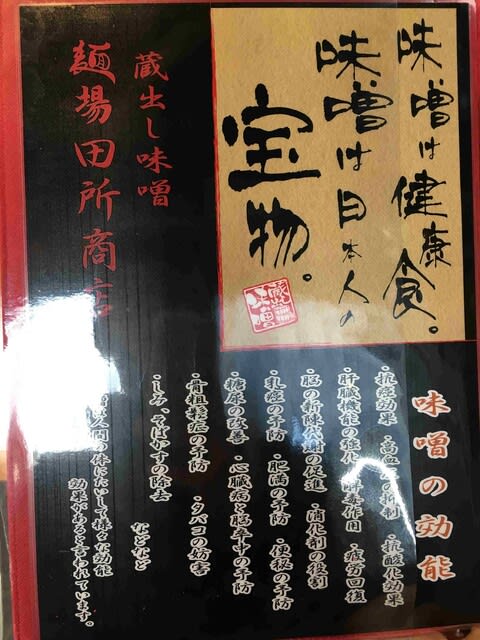 味噌は健康食。
味噌は日本人の
宝物。
蔵出し味噌
麺場田所商店
味噌の効能
・抗癌効果 ・高血 の抑制 ・抗酸化効果
・肝臓機能の強化 ・解毒作用 ・疲労回復
・脳の新陳代謝の促進 ・消化剤の役割
・乳癌の予防 ・肥満の予防 ・便秘の予防
・糖尿の改善 ・心臓病と脳卒中の予防
・骨粗鬆症の予防 ・タバコの妨害
・しみ、そばかすの除去 などなど
人間の体にたいして様々な効能
効果があると言われています。